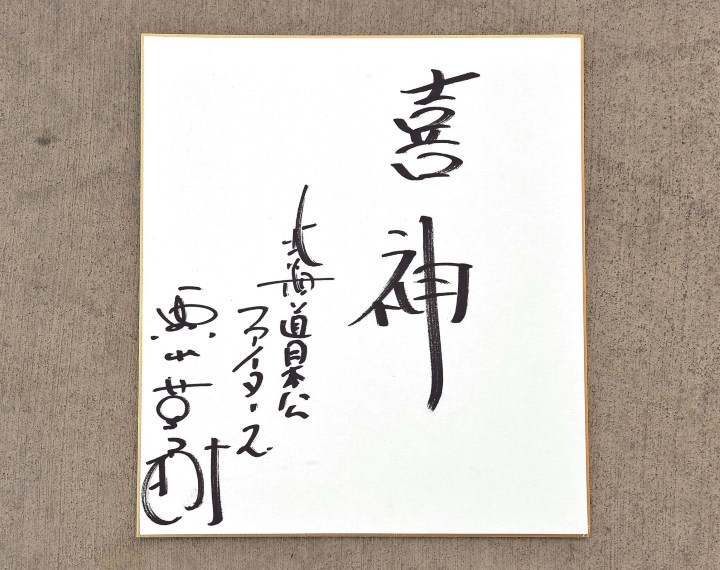 喜神
北海道日本公
ファイターズ
栗山英樹